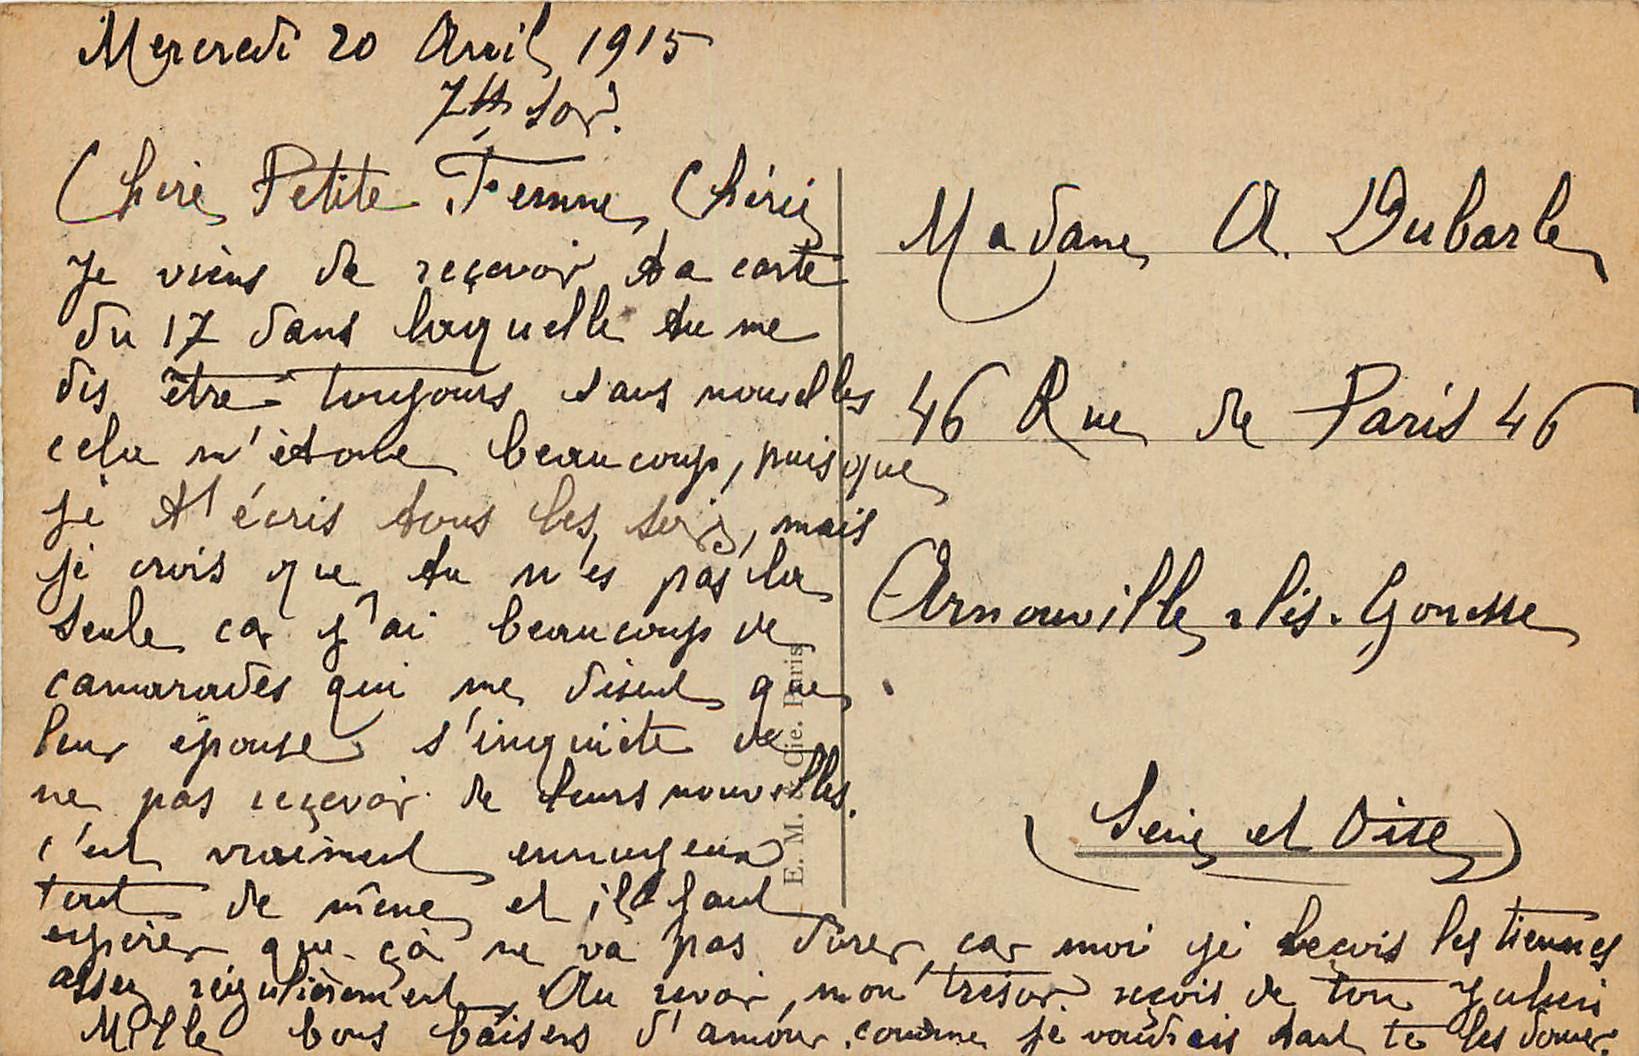 Mercredi 20 Avril 1915
7h soir.
Chère Petite Femme Chérie
Je viens de reçevoir ta carte
du 17 dans laquelle tu me
dis être toujours sans nouvelles
cela m'étone beaucoup, puisque
je t'écris tous les soirs, mais
je crois que tu n'es pas la
seule car j'ai beaucoup de
camarades qui me disent que
leur épouse s'inquiète de
ne pas reçevoir de leurs nouvelles.
c'est vraiment ennuyeux
tout de même et il faut
espérer que çà ne va pas durer, car moi je recois les tiennes
assez régulièrement, Au revoir, mon trésor reçois de ton
Mille bons baisers d'amour, comme je voudrais tant te les donner.
Madame A. Dubarle
46 Rue de Paris 46
Arnouville-lès-Gonesse
(Seine et Oise)
E. M. & Cie. Paris